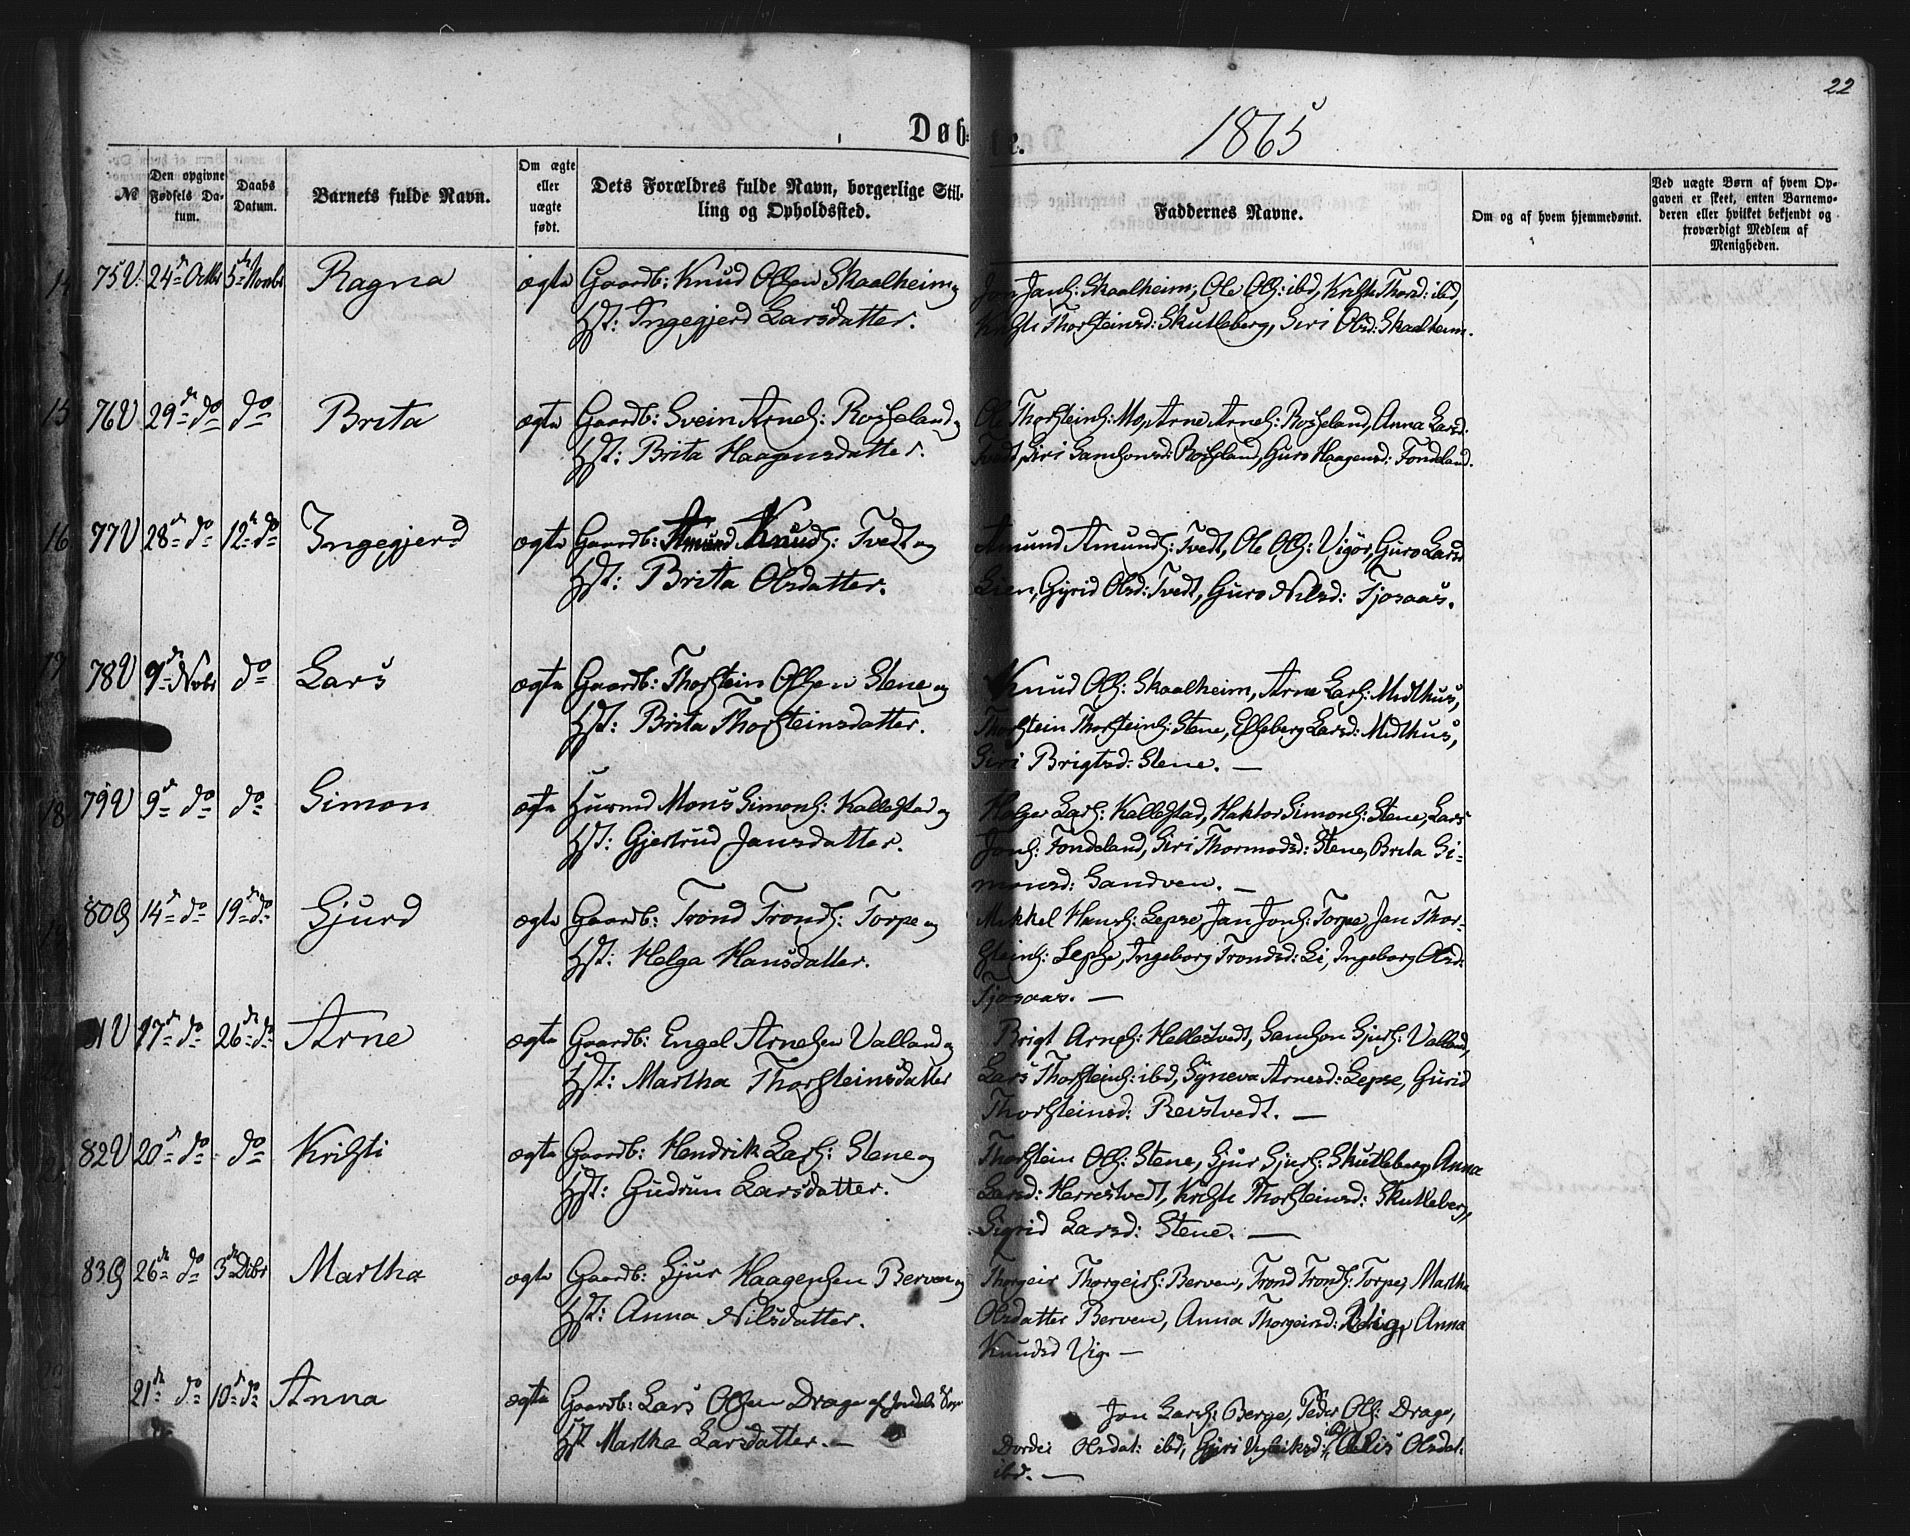 22
Døbte.
1865
№
Den opgivne Fødsels Datum.
Daabs Datum.
Barnets fulde Navn.
Om ægte eller uægte født.
Dets Forældres fulde Navn, borgerlige Stilling og Opholdssted.
Faddernes Navne.
Om og af hvem hjemmedøbt.
Ved uægte Børn af hvem Opgaven er skeet, enten Barnemoderen eller hvilket bekjendt og troværdigt Medlem af Menigheden.
75 V. 24de Octbr 5te Novbr Ragna ægte Gaardb: Knud Olsen Skaalheim og
Hst: Ingegjerd Larsdatter.
Jon Jans: Skaalheim, Ole Ols: ibd, Kristi Thorsd: ibd,
Kristi Thorsteinsd: Skutleberg, Siri Olsd: Skaalheim.
76 V 29de do do Brita ægte Gaardb: Svein Arnes: Rosseland og
Hst: Brita Haagensdatter.
Ole Thorsteins: Mo, Arne Arnes: Rosseland, Anna Larsd:
Tvedt, Siri Samsonsd: Rosseland, Guro Haagensd: Fondeland.
77 V 28de do 12te do Ingegjerd ægte Gaardb: Amund Knuds: Tvedt og
Hst: Brita Olsdatter.
Amund Amunds: Tvedt, Ole Ols: Vigør, Guro Larsd
Lien, Gyrid Olsd: Tvedt, Guro Nilsd: Tjosaas.
78 V 9de Novbr do Lars ægte Gaardb: Thorstein Olsen Stene og
Hst: Brita Thorsteinsdatter.
Knud Ols: Skaalheim, Arne Lars: Midthus,
Thorstein Thorsteins: Stene, Elleberg Larsd: Midthus,
Siri Brigtsd: Stene. —
79 V 9de do do Simon ægte Husmd Mons Simons: Kallestad og
Hst: Gjertrud Jansdatter.
Holger Lars: Kallestad, Haktor Simons: Stene, Lars
Jons: Fondeland, Siri Thormodsd: Stene, Brita Si-
monsd: Sandven. —
80 Ø 14de do 19de do Sjurd ægte Gaardb: Trond Tronds: Torpe og
Hst: Helga Hansdatter.
Mikkel Hans: Lepse, Jan Jons: Torpe, Jan Thor-
steins: Lepse, Ingeborg Trondsd: Li, Ingeborg Olsd:
Tjosaas. —
81 V 17de do 26de do Arne ægte Gaardb: Engel Arnesen Valland og
Hst: Martha Thorsteinsdatter
Brigt Arnes: Hellestvedt, Samson Sjurs: Valland,
Lars Thorsteins: ibd, Syneva Arnesd: Lepse, Gurid
Thorsteinsd: Reistvedt. —
82 V 20de do do Kristi ægte Gaardb: Hendrik Lars: Stene og
Hst: Gudrun Larsdatter.
Thorstein Ols: Stene, Sjur Sjurs: Skutleberg, Anna
Larsd: Herrestvedt, Kristi Thorsteinsd: Skutleberg,
Sigrid Larsd: Stene. —
83 Ø 26de do 3de Dcbr Martha ægte Gaardb: Sjur Haagensen Berven og
Hst: Anna Nilsdatter.
Thorgeir Thorgeirs: Berven, Trond Tronds: Torpe, Martha
Olsdatter Berven, Anna Thorgeirsd: Vig, Anna
Knudsd Vig. —
21de do 10de do Anna ægte Gaardb: Lars Olsen Drage af Jondals
Hst Martha Larsdatter. —
Jon Lars: Berge, Peder Ols: Drage,
Olsdat: ibd, Guri ibd, Olsdat:
ibd. —